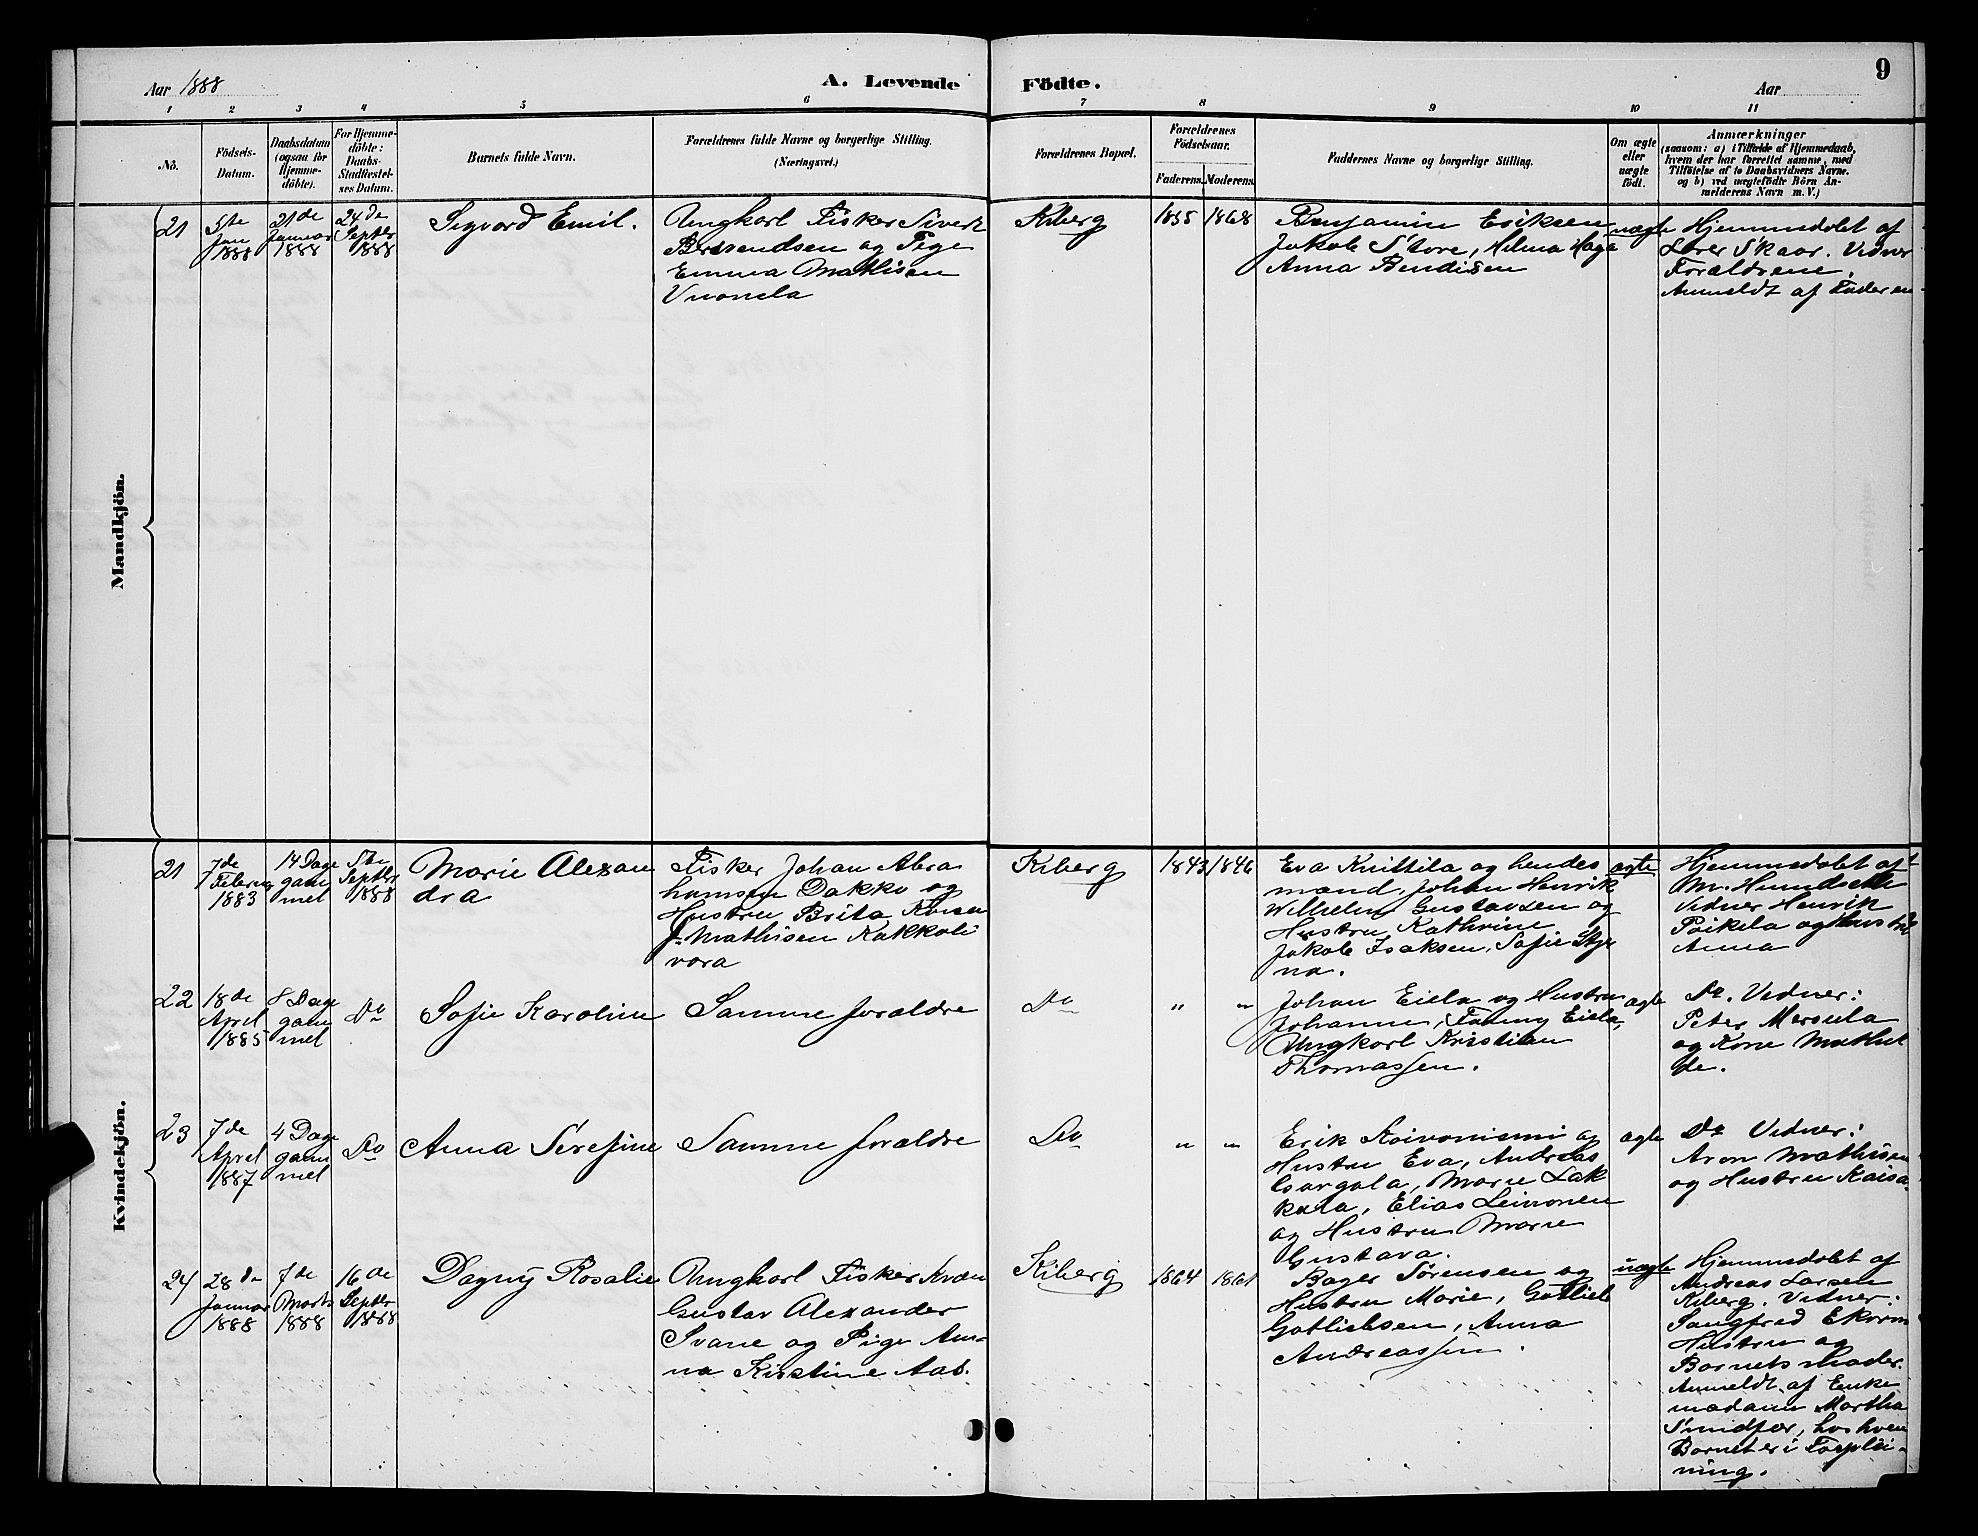 Aar 1888
A. Levende
Födte.
Aar
9
1 2 3 4 5 6 7 8 9 10 11
Nô.
Födsels-
Datum.
Daabsdatum
(ogsaa for
Hjemme-
döbte).
For Hjemme-
döbte:
Daabs-
Stadfæstel-
ses Datum.
Barnets fulde Navn.
Forældrenes fulde Navne og borgerlige Stilling.
(Næringsvei.)
Forældrenes Bopæl.
Forældrenes
Födselsaar.
Faderens. Moderens.
Faddernes Navne og borgerlige Stilling.
Om ægte
eller
uægte
födt.
Anmærkninger
(saasom: a) i Tilfælde af Hjemmedaab,
hvem der har forrettet samme, med
Tilföielse af to Daabsvidners Navne.
og b) ved uægtefödte Börn An-
melderens Navn m. V.)
Mandkjön.
21
5te
Jan
1888
21de
Januar
1888
24de
Septbr
1888
Sigvard Emil.
Ungkarl Fisker Sivert
Berendsen og Pige
Emma Mathisen
Vuonela
Kiberg
1855
1868
Benjamin Eriksen
Jakob Store, Helena Haga
Anna Bendiksen
uægte
Hjemmedøbt af
Lærer Skaar. Vidner
Forældrene.
Anmeldt af Faderen
Kvindekjön.
21
7de
Februar
1883
14 Dage
gam
mel
5te
Septbr
1888
Marie Alexan
dra
Fisker Johan Abra
hamsen Dakko og
Hustru Brita Kaisa
J. Mathisen Kakkoli
vara
Kiberg
1843
1846
Eva Knittila og hendes
mand, Johan Henrik
Wilhelm Gustavsen og
Hustru Kathrine
Jakob Isaksen, Sofie Sty
na.
ægte
Hjemmedøbt af
M. Hundseth
Vidner Henrik
Poikela og Hustru
Anna
22
18de
April
1885
8 Dage
gam
mel
Do
Sofie Karoline
Samme forældre
Do
"
"
Johan Eiela og Hustru
Johanne, Fanny Eiela,
Ungkarl Kristian
Thomassen.
ægte
Do. Vidner:
Peter Mersula
og Kone Mathil
de.
23
7de
April
1887
4 Dage
gam
mel
Do
Anna Serefine
Samme forældre
Do
"
"
Erik Koivoniemi og
Hustru Eva, Andreas
Marie Lak
kala, Elias Leinonen
og Hustru Marie
Gustava.
ægte
Do Vidner:
Aron Mathisen
og Hustru Kaisa.
24
28de
Januar
1888
7de
Marts
1888
16de
Septbr
1888
Dagny Rosalie
Ungkarl Fisker Kvæn
Gustav Alexander
Svane og Pige An-
na Kristine Aas.
Kiberg
1864
1861
Bager Sørensen og
Hustru Marie, Gotlieb
Gotliebsen, Anna
Andreassen.
uægte
Hjemmedøbt af
Andreas Larsen
Kiberg. Vidner:
Sangfred Ekrem
Hustru og
Barnets Moder.
Anmeldt af Enke
madam Martha
Smidfær, hos hvem
Barnet er i Forplei-
ning.